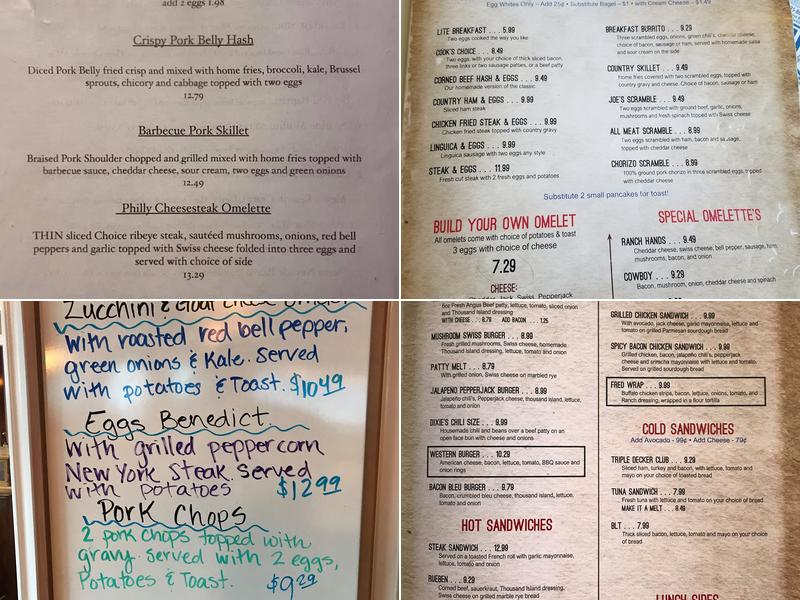 add 2 eggs 1.98
Crispy Pork Belly Hash
Diced Pork Belly fried crisp and mixed with home fries, broccoli, kale, Brussel
sprouts, chicory and cabbage topped with two eggs
12.79
Barbecue Pork Skillet
Braised Pork Shoulder chopped and grilled mixed with home fries topped with
barbecue sauce, cheddar cheese, sour cream, two eggs and green onions
12.49
Philly Cheesesteak Omelette
THIN sliced Choice ribeye steak, sautéed mushrooms, onions, red bell
peppers and garlic topped with Swiss cheese folded into three eggs and
served with choice of side
13.29
Egg Whites Only – Add 25¢ • Substitute Bagel – $1 • with Cream Cheese – $1.49
LITE BREAKFAST . . . 5.99
Two eggs cooked the way you like
COOK'S CHOICE . . 8.49
Two eggs, with your choice of thick sliced bacon,
three links or two sausage patties, or a beef patty
CORNED BEEF HASH & EGGS . . . 9.49
Our homemade version of the classic
COUNTRY HAM & EGGS . . . 9.99
Sliced ham steak
CHICKEN FRIED STEAK & EGGS . . . 9.99
Chicken fried steak topped with country gravy
LINGUICA & EGGS . . . 9.99
Linguica sausage with two eggs any style
STEAK & EGGS . . . 11.99
Fresh cut steak with 2 fresh eggs and potatoes
BREAKFAST BURRITO . . . 9.29
Three scrambled eggs, onions, green chili's, cheddar cheese,
choice of bacon, sausage or ham, served with homemade salsa
and sour cream on the side
COUNTRY SKILLET . . . 9.49
Home fries covered with two scrambled eggs, topped with
country gravy and cheese. Choice of bacon, sausage or ham
JOE'S SCRAMBLE . . . 9.49
Two eggs scrambled with ground beef, garlic, onions,
mushrooms and fresh spinach topped with Swiss cheese
ALL MEAT SCRAMBLE . . . 8.99
Two eggs scrambled with ham, bacon and sausage,
topped with cheddar cheese
CHORIZO SCRAMBLE . . . 8.99
100% ground pork chorizo in three scrambled eggs, topped
with cheddar cheese
Substitute 2 small pancakes for toast!
BUILD YOUR OWN OMELET
All omelets come with choice of potatoes & toast
3 eggs with choice of cheese
7.29
CHEESE:
Cheddar, Jack, Swiss, Pepperjack
SPECIAL OMELETTE'S
RANCH HANDS . . . 9.49
Cheddar cheese, swiss cheese, bell pepper, sausage, ham,
mushrooms, bacon, and onion
COWBOY . . . 9.29
Bacon, mushroom, onion, cheddar cheese and spinach
Zucchini & Goat Cheese Omelet
with roasted red bell pepper,
green onions & Kale. Served
with potatoes & Toast. $10.49
Eggs Benedict
With grilled peppercorn
New York Steak. Served
with potatoes $12.99
Pork Chops
2 pork chops topped with
gravy. served with 2 eggs,
Potatoes & Toast. $9.29
6oz Fresh Angus Beef patty, tomato, sliced onion
and Thousand Island dressing
WITH CHEESE . . 8.79 ADD BACON . . 1.25
MUSHROOM SWISS BURGER . . . 8.99
Fresh grilled mushrooms, Swiss cheese, homemade
Thousand Island dressing, lettuce, tomato and onion
PATTY MELT . . . 8.79
With grilled onion, Swiss cheese on marbled rye
JALAPENO PEPPERJACK BURGER . . . 8.99
Jalapeño chili's, Pepperjack cheese, thousand island, lettuce,
tomato and onion
DIXIE'S CHILI SIZE . . . 9.99
Housemade chili and beans over a beef patty on an
open face bun with cheese and onions
WESTERN BURGER . . . 10.29
American cheese, bacon, lettuce, tomato, BBQ sauce and
onion rings
BACON BLEU BURGER . . . 9.79
Bacon, crumbled bleu cheese, thousand island, lettuce,
tomato and onion
HOT SANDWICHES
STEAK SANDWICH . . . 12.99
Served on a toasted French roll with garlic mayonnaise,
lettuce, tomato and onion
RUEBEN . . . 9.29
Corned beef, sauerkraut, Thousand Island dressing,
Swiss cheese on grilled marble rye bread
GRILLED CHICKEN SANDWICH . . . 9.99
With avocado, jack cheese, garlic mayonnaise, lettuce and
tomato on grilled Parmesan sourdough bread
SPICY BACON CHICKEN SANDWICH . . . 9.99
Grilled chicken, bacon, jalapeño chili's, pepperjack
cheese and sriracha mayonnaise with lettuce and tomato.
Served on grilled sourdough
FRED WRAP . . . 9.99
Buffalo chicken strips, bacon, lettuce, onions, tomato, and
Ranch dressing, wrapped in a flour tortilla
COLD SANDWICHES
Add Avocado - 99¢ • Add Cheese - 79¢
TRIPLE DECKER CLUB . . . 9.29
Sliced ham, turkey and bacon, with lettuce, tomato and
mayo on your choice of toasted bread
TUNA SANDWICH . . . 7.99
Fresh tuna with lettuce and tomato on your choice of bread
MAKE IT A MELT . . . 8.49
BLT . . . 7.99
Thick sliced bacon, lettuce, tomato and mayo on your choice
of bread
LUNCH SIDES